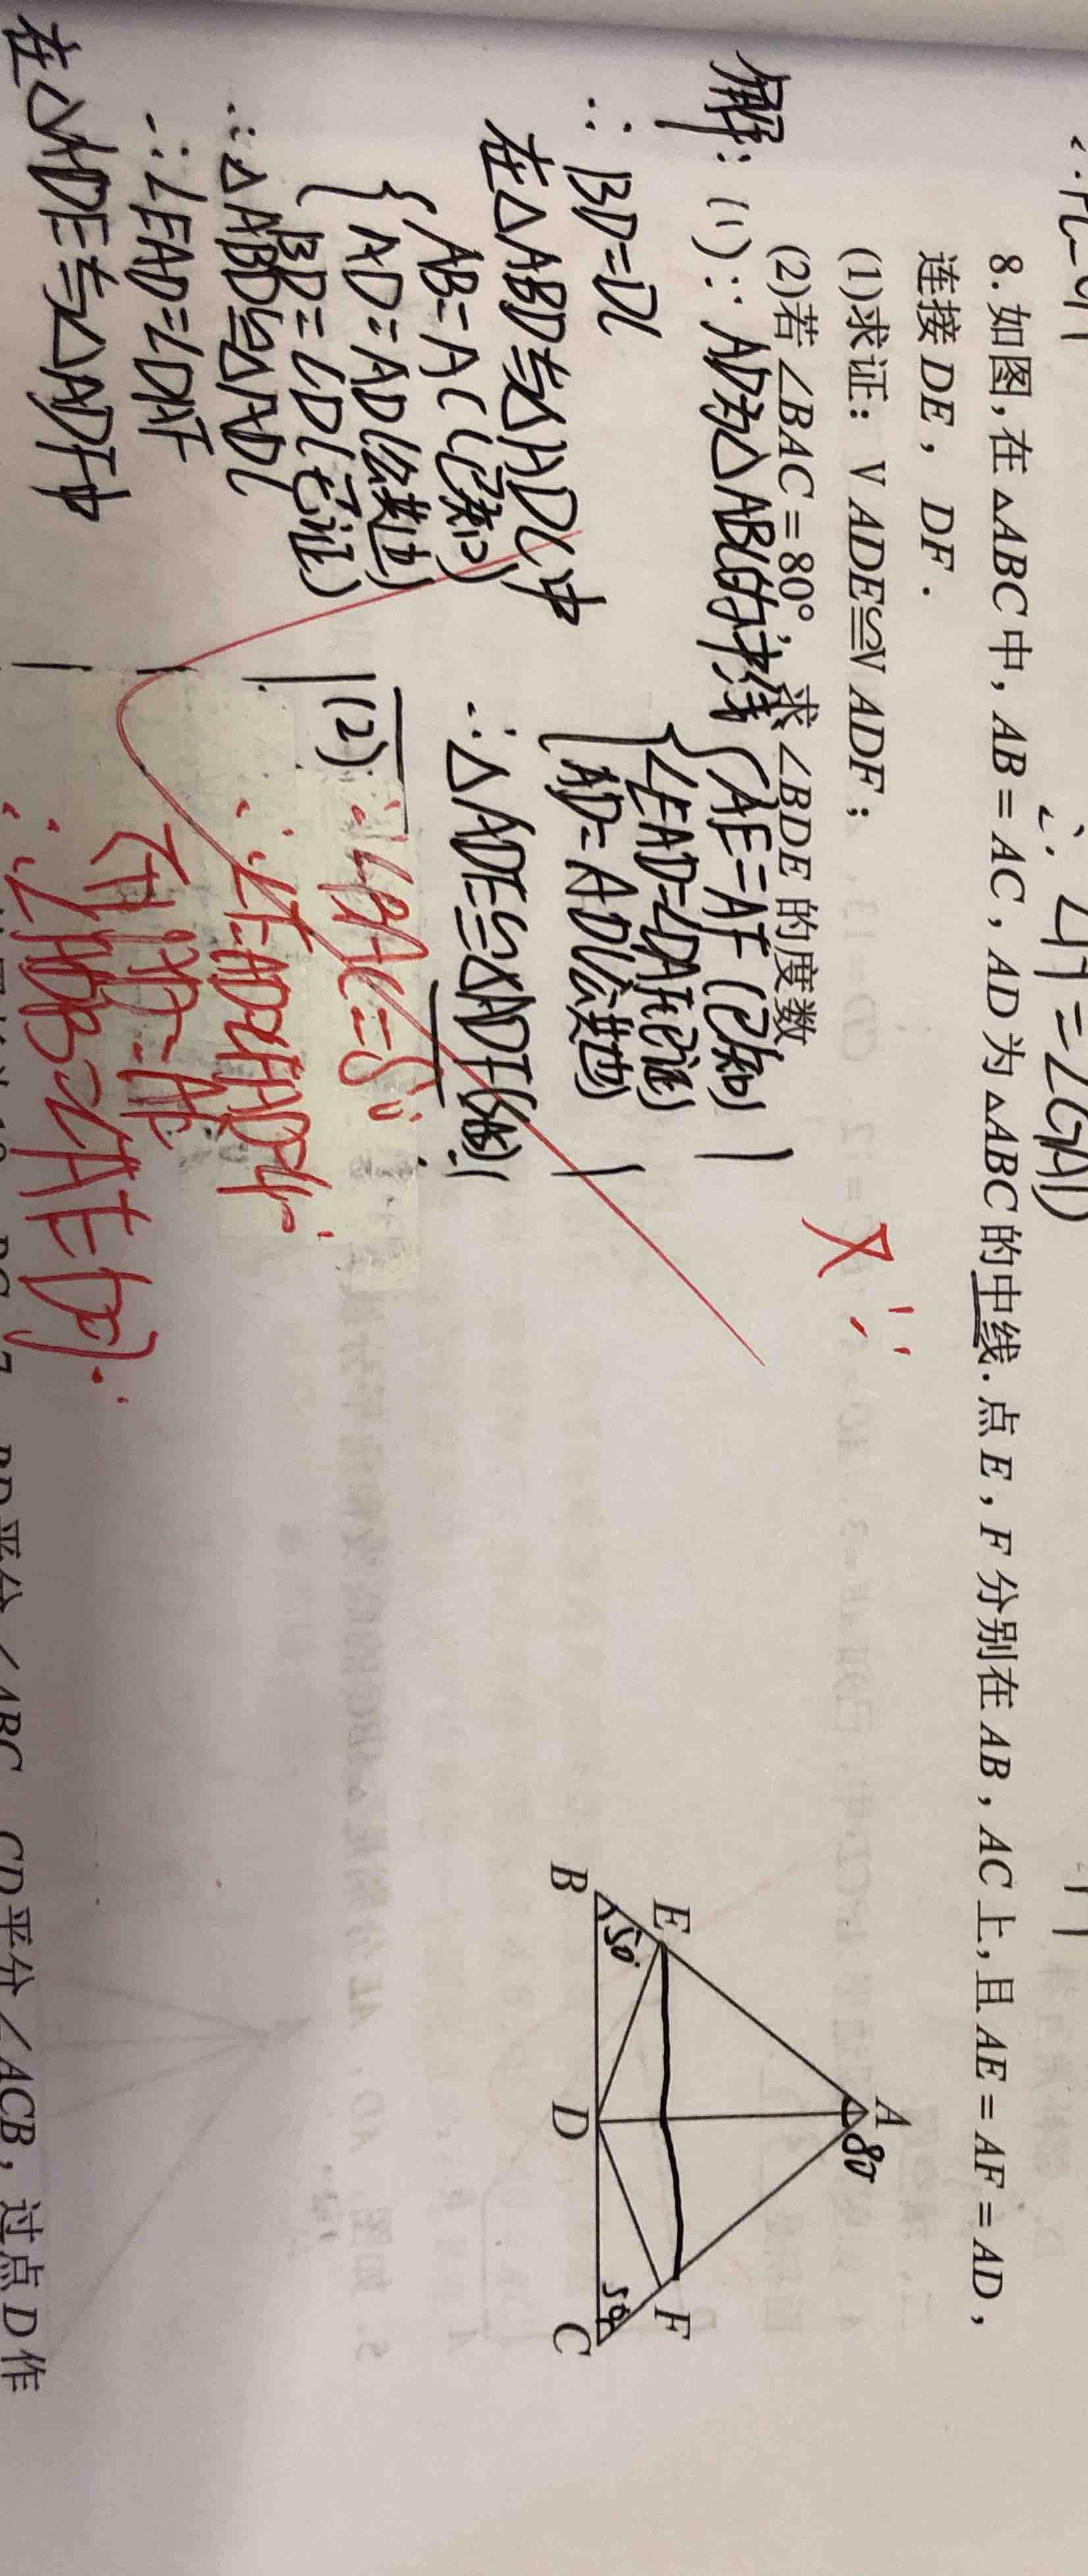 ∠1=∠GAD
8.如图,在△ABC中,AB=AC,AD为△ABC的中线.点E,F分别在AB,AC上,且AE=AF=AD,
连接DE,DF.
(1)求证:V ADE≌V ADF;
(2)若∠BAC=80°,求∠BDE的度数
解:(1)∵AD为△ABC的中线
∴BD=DC
在△ABD与△ADC中
AB=AC(已知)
AD=AD(公共边)
BD=CD(已证)
∴△ABD≌△ADC
∴∠EAD=∠DAF
在△ADE与△ADF中
AE=AF(已知)
∠EAD=∠DAF(已证)
AD=AD(公共边)
∴△ADE≌△ADF(SAS)
(2)
又∵
A
80
E
F
B
50°
D
50
C
BD平分∠ABC CD平分∠ACB,过点D作